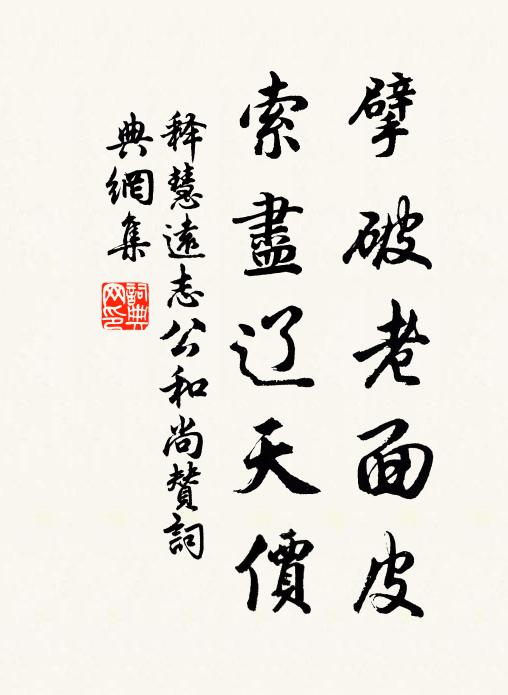 擘破老面皮
索盡辽天價
释慧遠志公和尚赞詞
典網集
詞典網印